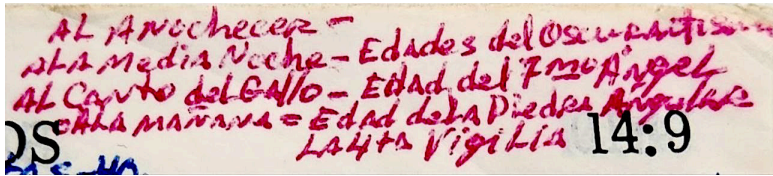 AL ANochecer -
ALA MediA Noche - EdAdes del OscuRANtismo
AL CANto del GAllo - EdAd del 7mo ÁNgel
o ALA MAÑANA = EdAd de lA PiedRA ANgulAR
LA 4tA VigiLiA 14:9
OS